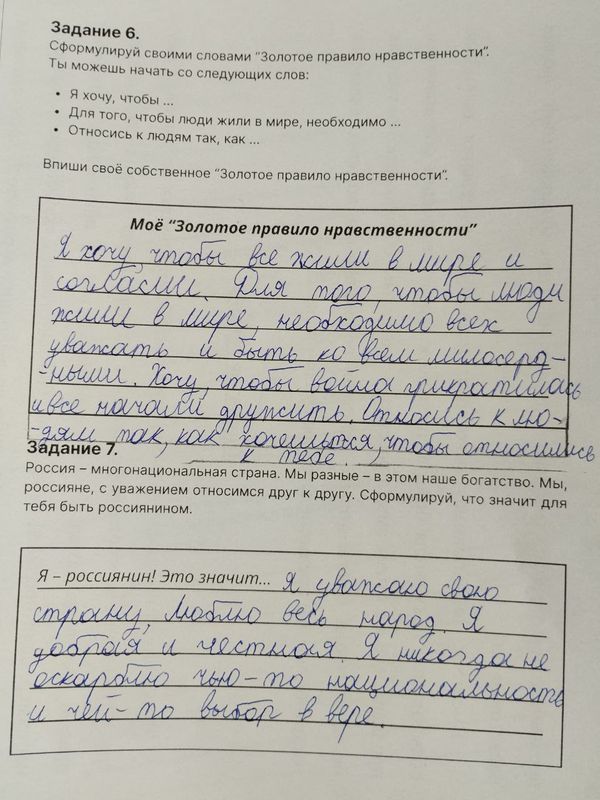 Задание 6.
Сформулируй своими словами "Золотое правило нравственности".
Ты можешь начать со следующих слов:
• Я хочу, чтобы ...
• Для того, чтобы люди жили в мире, необходимо ...
• Относись к людям так, как ...
Впиши своё собственное "Золотое правило нравственности".
Моё "Золотое правило нравственности"
Я хочу, чтобы все жили в мире и
согласии. Для того, чтобы люди
жили в мире, необходимо всех
уважать и быть ко всем милосерд-
-ными. Хочу, чтобы война прикратилась
и все начали дружить. Относись к лю-
-дям так, как хочешься, чтобы относились
к тебе.
Задание 7.
Россия – многонациональная страна. Мы разные – в этом наше богатство. Мы,
россияне, с уважением относимся друг к другу. Сформулируй, что значит для
тебя быть россиянином.
Я – россиянин! Это значит... Я уважаю свою
страну, люблю весь народ. Я
добрая и честная. Я никогда не
оскарблю чью-то национальность
и чей-то выбор в вере.